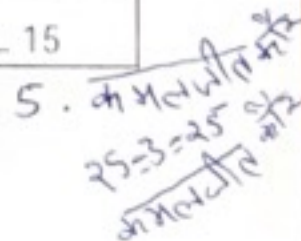 15
5. कमलजीत कौर
25=3=25
कमलजीत कौर